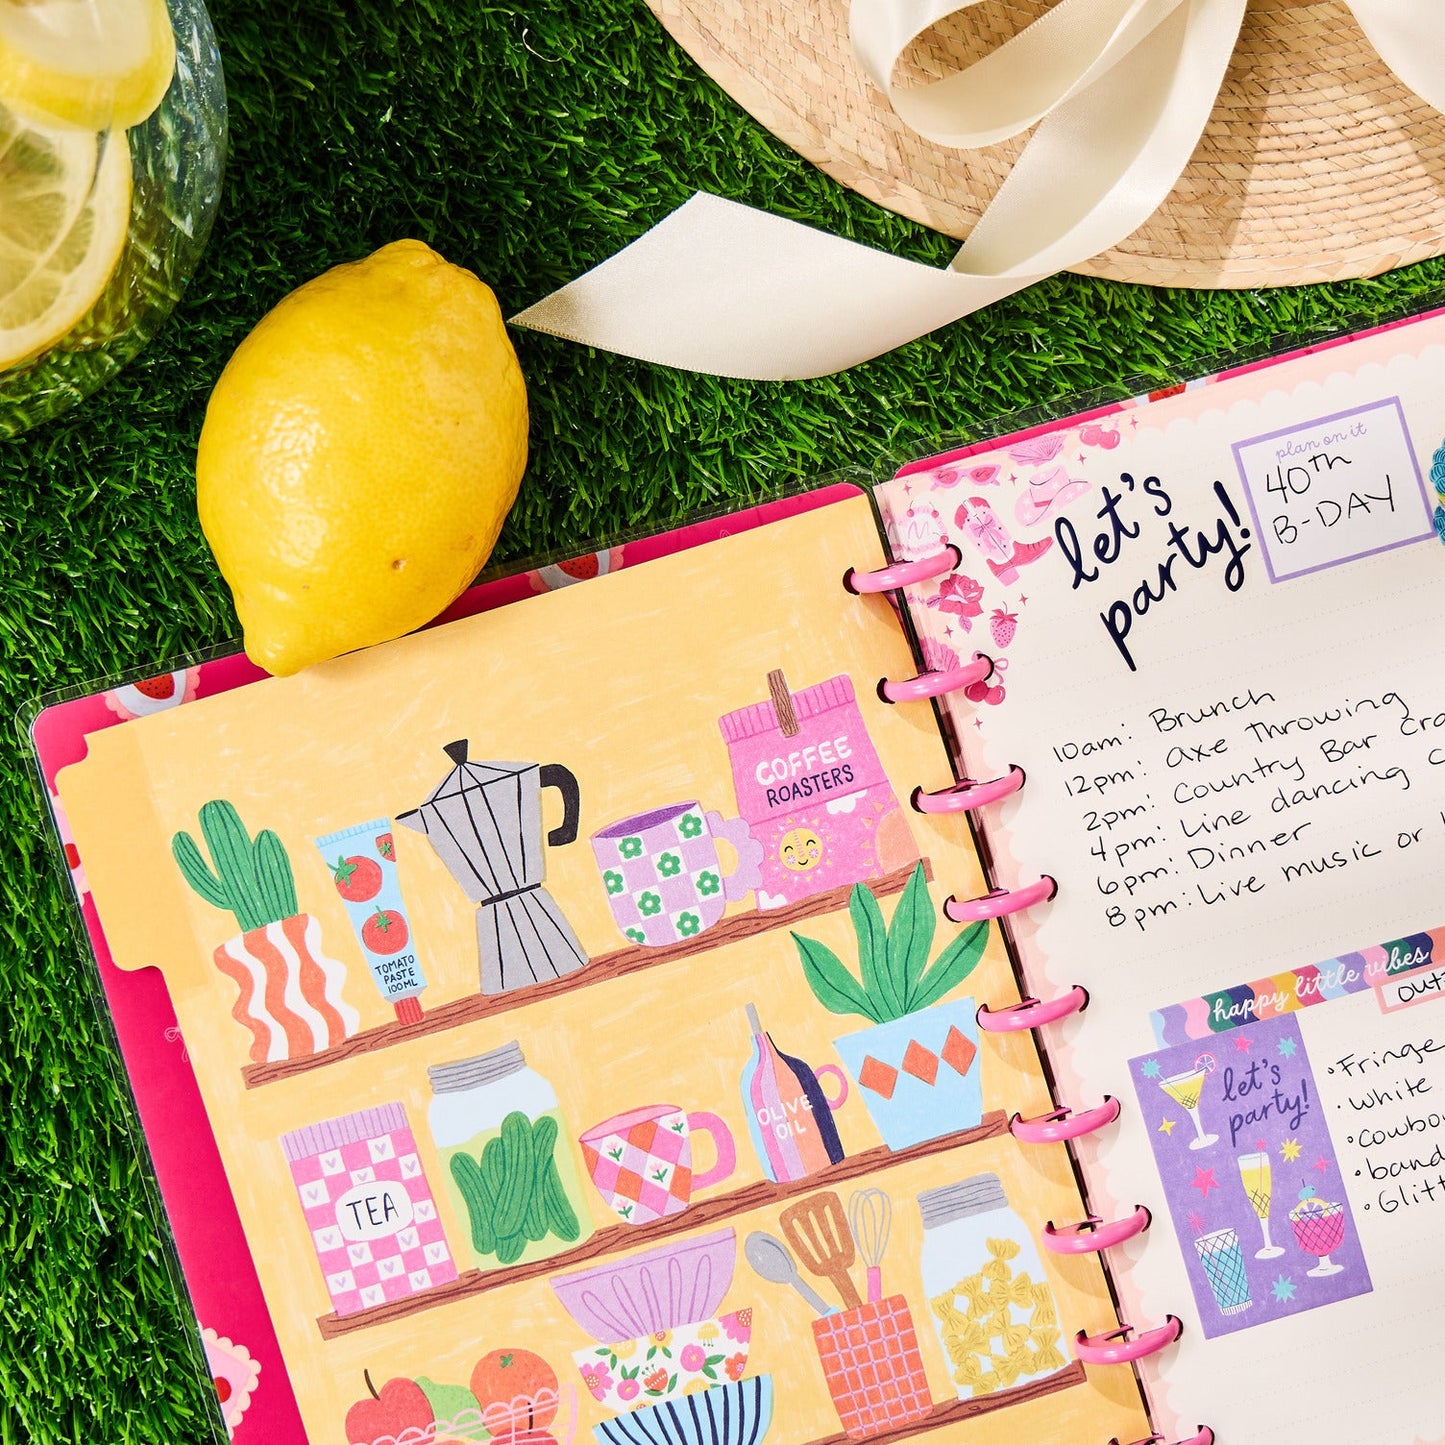 COFFEE
ROASTERS
TOMATO
PASTE
100ML
OLIVE
OIL
TEA
let's
party!
plan on it
40th
B-DAY
10am: Brunch
12pm: axe Throwing
2pm: Country Bar
4pm: Line dancing
6pm: Dinner
8pm: Live music or
happy little vibes
let's
party!
• Fringe
• White
• Cowbo
• band
• Glitt